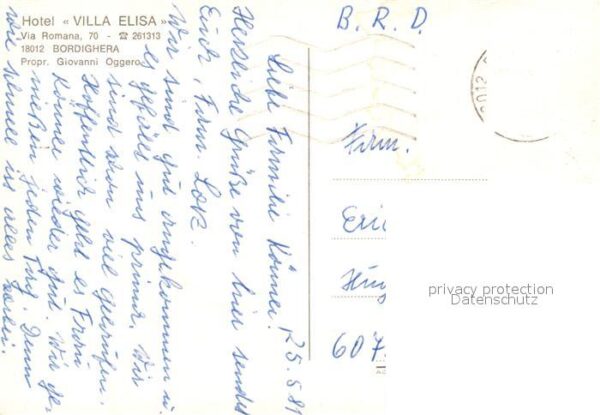 Hotel « VILLA ELISA »
Via Romana, 70 - ☎ 261313
18012 BORDIGHERA
Propr. Giovanni Oggero
B. R. D.
25.5.81
Liebe Familie
Herzliche Grüße von hier sendet
Euch, Fam.
Wir sind gut angekommen u.
es gefällt uns prima. Wir
sind schon viel gelaufen.
Hoffentlich geht es Frau
wieder gut. Wir ge-
nießen jeden Tag. Denn
wie schnell ist alles vorbei.
Fam.
607
18012
privacy protection
Datenschutz